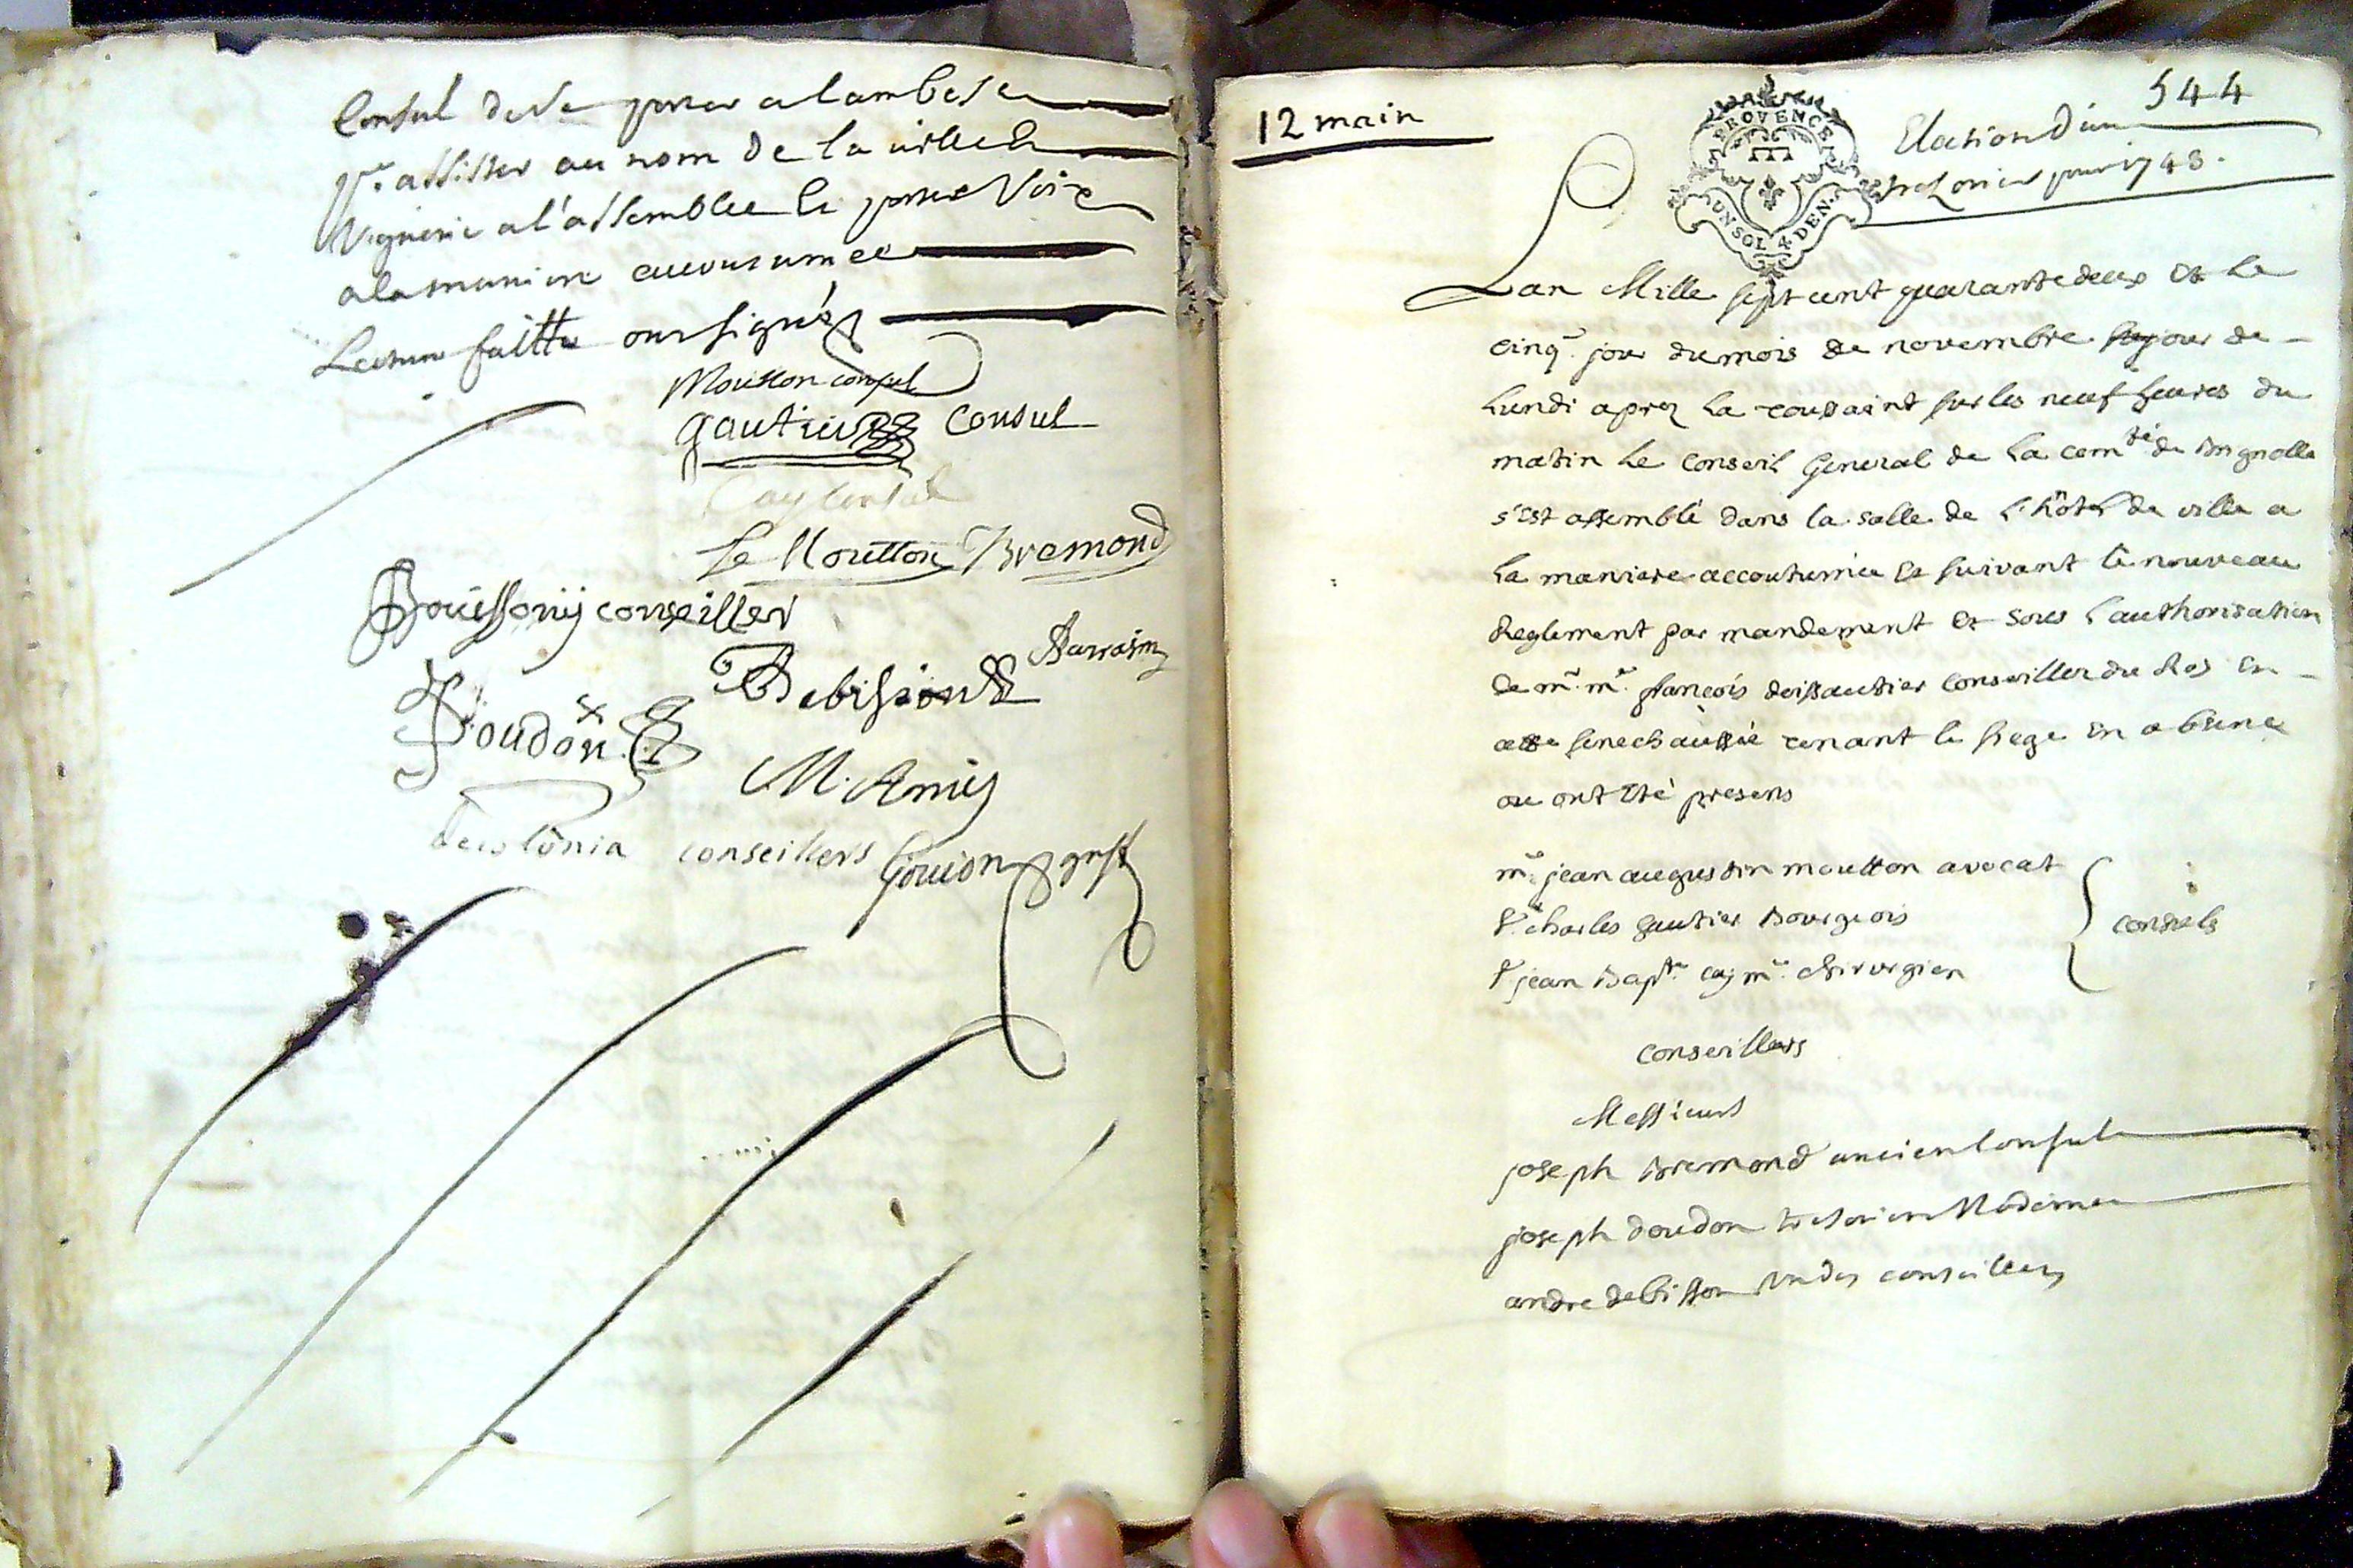 Consul de se porter a lambesc
pr. assister au nom de la ville &
Viguerie a l'assemblée le porter Voix
a la maniere accoutumée
Lecture faitte ont signés
Moutton consul
gautier Consul
Caij Consul
Le Moutton Bremond
Bouissony conseiller
Barrasin
Debisson
Doudon
M. Amic
conseillers Gouion greff
12 main
PROVENCE
UN SOL 4 DEN.
544
Election d'un
trezorier pour 1743.
Lan Mille sept cent quarante deux et le
cinqe. jour du mois de novembre jour de
Lundi aprez la toussaint sur les neuf heures du
matin le conseil General de la comté de Brignolle
s'est assemblé dans la salle de l'hôtel de ville a
la maniere accoutumée et suivant le nouveau
Reglement par mandement et sous l'authorisation
de mr. me. françois deissautier conseiller du Roy en
cette senechaussée tenant le siege en absence
ou ont eté presens
me. jean augustin moutton avocat
Sr. charles gautier Bourgeois
consuls
Sr jean Bapte. caij me. chirurgien
conseillers
Messieurs
joseph Bremond ancien Consul
joseph doudon tresorier Moderne
andre debisson conseillers